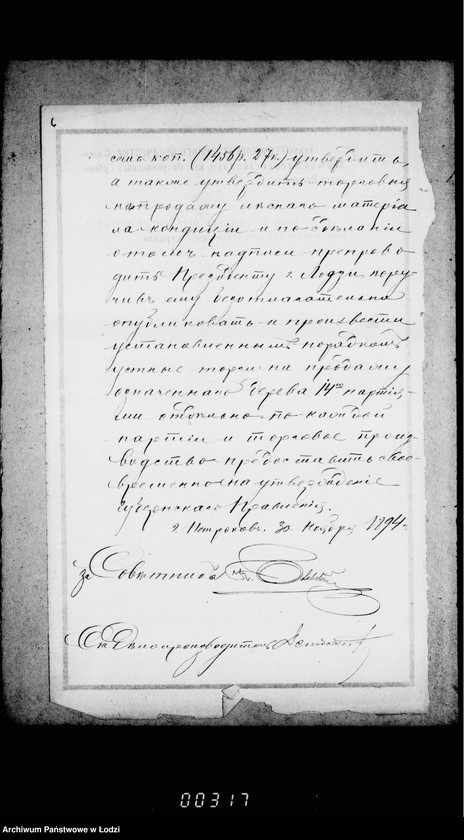 6
семь коп. (1456 р. 27 к.) утвердить,
а также утвердить торговыя
на продажу лѣснаго матеріа
ла кондиціи и по сдѣланіи
о томъ надписи препрово
дить Президенту г. Лодзи, пору-
чивъ ему безотлагательно
опубликовать и произвести
установленнымъ порядкомъ
устные торги на продажу
означеннаго дерева 14ю партія-
ми отдѣльно по каждой
партіи и торговое произ-
водство представить свое-
временно на утвержденіе
Губернскаго Правленія.
г. Петроковъ. 30 Ноября 1894 г.
За Совѣтника
Ст. Дѣлопроизводитель
00317
Archiwum Państwowe w Łodzi